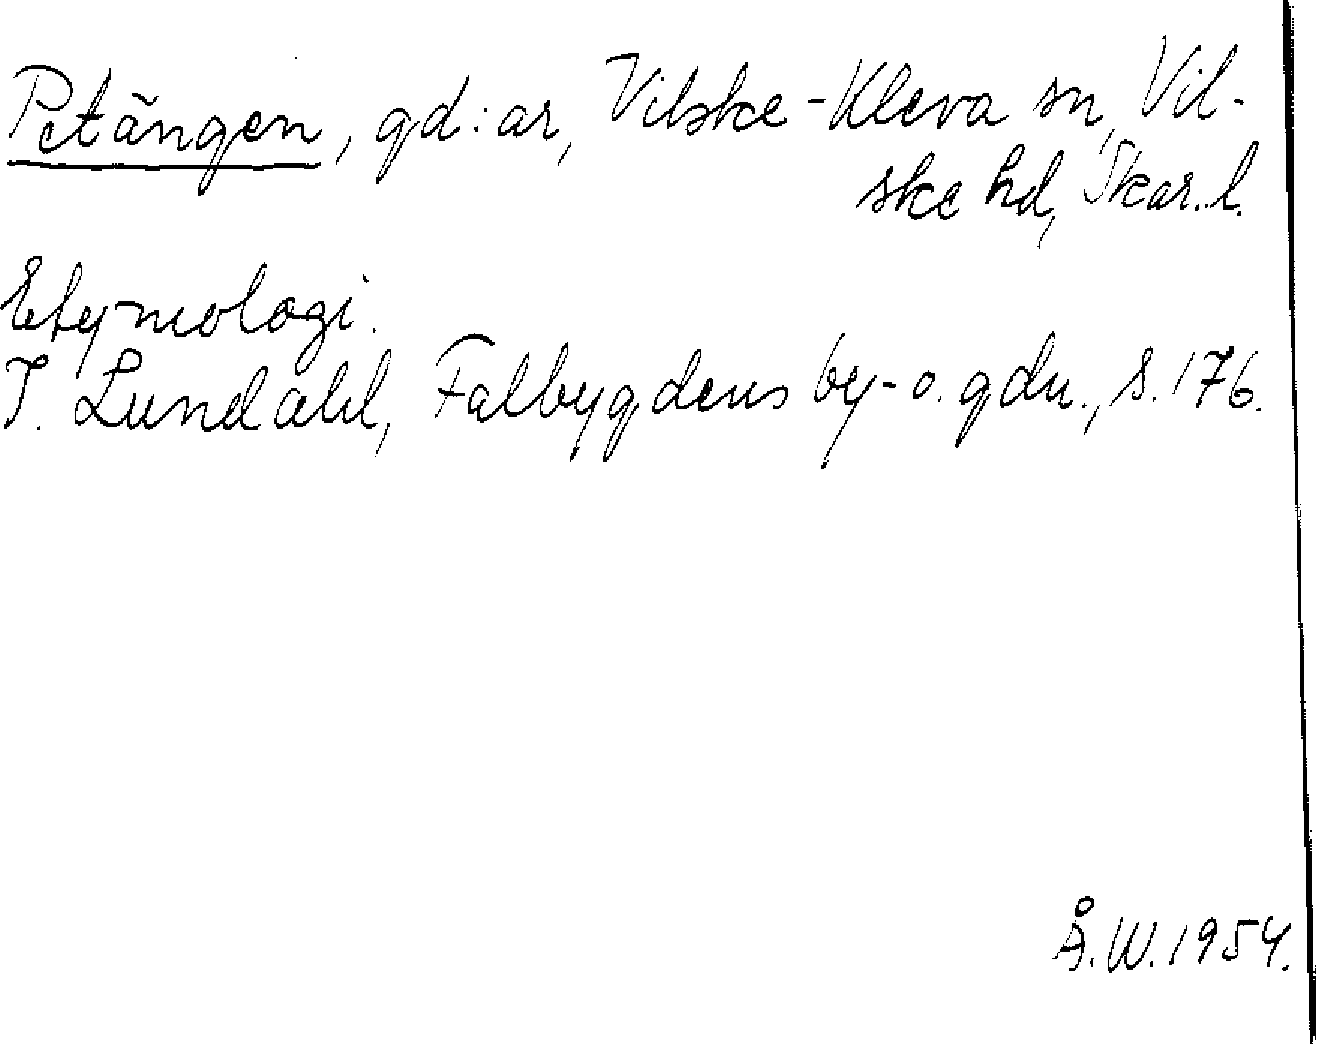 Petängen, gd:ar, Vilske-Kleva sn, Vil-
ske hd, Skar. l.
Etymologi.
I. Lundahl, Falbygdens by- o. gdn., s. 176.
Å.W. 1954.